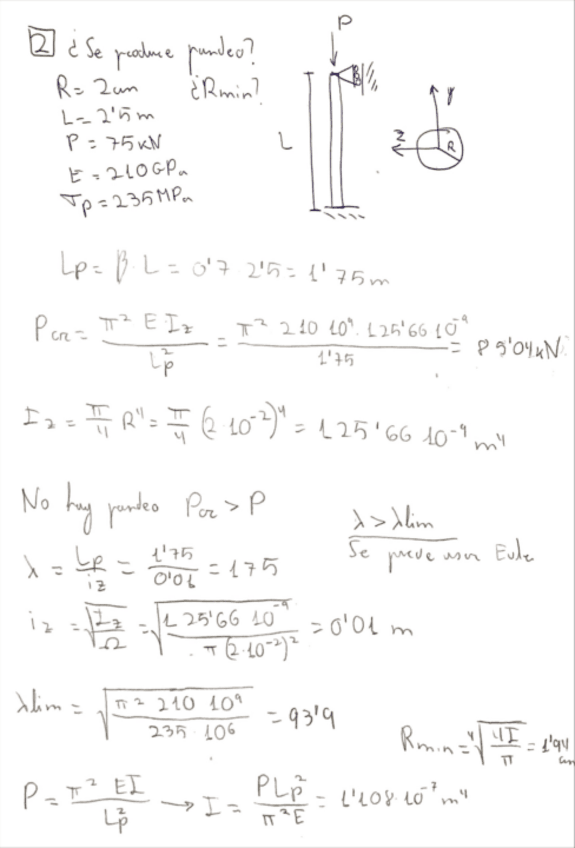 2 ¿Se produce pandeo?
R = 2cm ¿Rmin?
L = 2'5 m
P = 75 kN
E = 210 GPa
σp = 235 MPa
P
L
y
z
R
Lp = β · L = 0'7 2'5 = 1'75 m
Pcr = π² E Iz / Lp² = π² 210 10⁹ · 125'66 10⁻⁹ / 1'75 = 85'04 kN
Iz = π/4 R⁴ = π/4 (2 10⁻²)⁴ = 125'66 10⁻⁹ m⁴
No hay pandeo Pcr > P
λ > λlim
Se puede usar Euler
λ = Lp / iz = 1'75 / 0'01 = 175
iz = √(Iz / Ω) = √(125'66 10⁻⁹ / π (2·10⁻²)²) = 0'01 m
λlim = √(π² 210 10⁹ / 235 · 10⁶) = 93'9
Rmin = ⁴√(4I / π) = 1'94 cm
P = π² EI / Lp² → I = PLp² / π²E = 1'108·10⁻⁷ m⁴